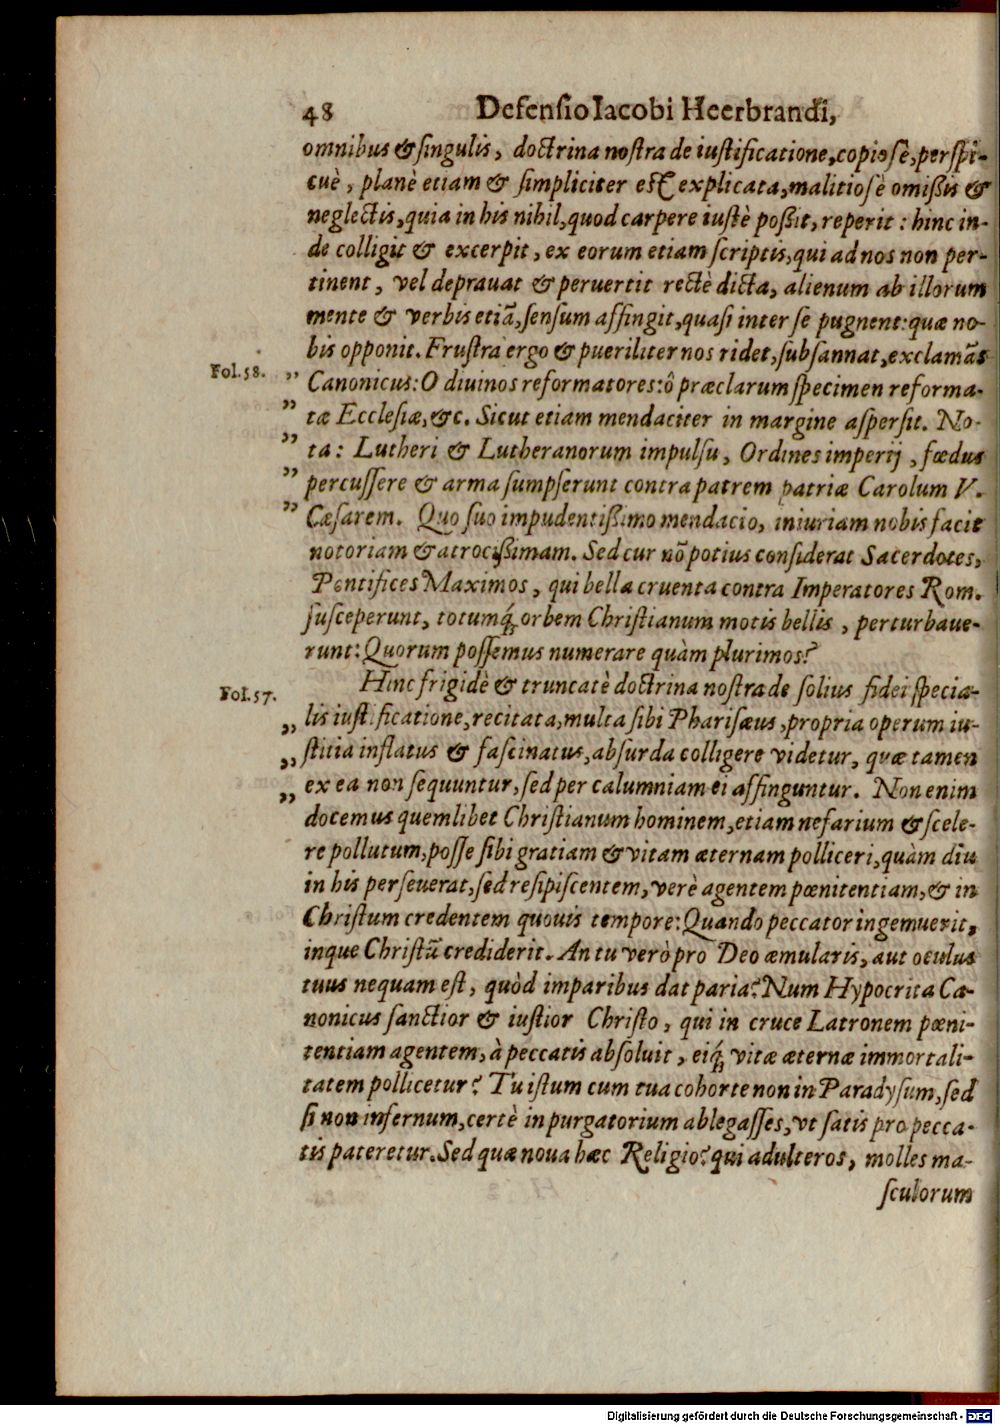 48 Defensio Iacobi Heerbrandi,
omnibus & singulis, doctrina nostra de iustificatione, copiosè, perspi-
cuè, planè etiam & simpliciter est explicata, malitiosè omißis &
neglectis, quia in his nihil, quod carpere iustè poßit, reperit: hinc in-
de colligit & excerpit, ex eorum etiam scriptis, qui ad nos non per-
tinent, vel deprauat & peruertit rectè dicta, alienum ab illorum
mente & verbis etiã, sensum affingit, quasi inter se pugnent: quæ no-
bis opponit. Frustra ergo & pueriliter nos ridet, subsannat, exclamãs
Fol. 58. ,, Canonicus: O diuinos reformatores: ô præclarum specimen reforma-
,, tæ Ecclesiæ, &c. Sicut etiam mendaciter in margine aspersit. No-
,, ta: Lutheri & Lutheranorum impulsu, Ordines imperij, fœdus
,, percussere & arma sumpserunt contra patrem patriæ Carolum V.
,, Cæsarem. Quo suo impudentißimo mendacio, iniuriam nobis facit
notoriam & atrocißimam. Sed cur nõ potius considerat Sacerdotes,
Pontifices Maximos, qui bella cruenta contra Imperatores Rom.
susceperunt, totumq́ orbem Christianum motis bellis, perturbaue-
runt: Quorum possemus numerare quàm plurimos?
Fol. 57. Hinc frigidè & truncatè doctrina nostra de solius fidei specia-
,, lis iustificatione, recitata, multa sibi Pharisæus, propria operum iu-
,, stitia inflatus & fascinatus, absurda colligere videtur, quæ tamen
,, ex ea non sequuntur, sed per calumniam ei affinguntur. Non enim
docemus quemlibet Christianum hominem, etiam nefarium & scele-
re pollutum, posse sibi gratiam & vitam æternam polliceri, quàm diu
in his perseuerat, sed resipiscentem, verè agentem pœnitentiam, & in
Christum credentem quouis tempore: Quando peccator ingemuerit,
inque Christũ crediderit. An tu verò pro Deo æmularis, aut oculus
tuus nequam est, quòd imparibus dat paria? Num Hypocrita Ca-
nonicus sanctior & iustior Christo, qui in cruce Latronem pœni-
tentiam agentem, à peccatis absoluit, eiq́ vitæ æternæ immortali-
tatem pollicetur? Tu istum cum tua cohorte non in Paradysum, sed
si non infernum, certè in purgatorium ablegasses, vt satis pro pecca-
tis pateretur. Sed quæ noua hæc Religio? qui adulteros, molles ma-
sculorum
Digitalisierung gefördert durch die Deutsche Forschungsgemeinschaft - DFG